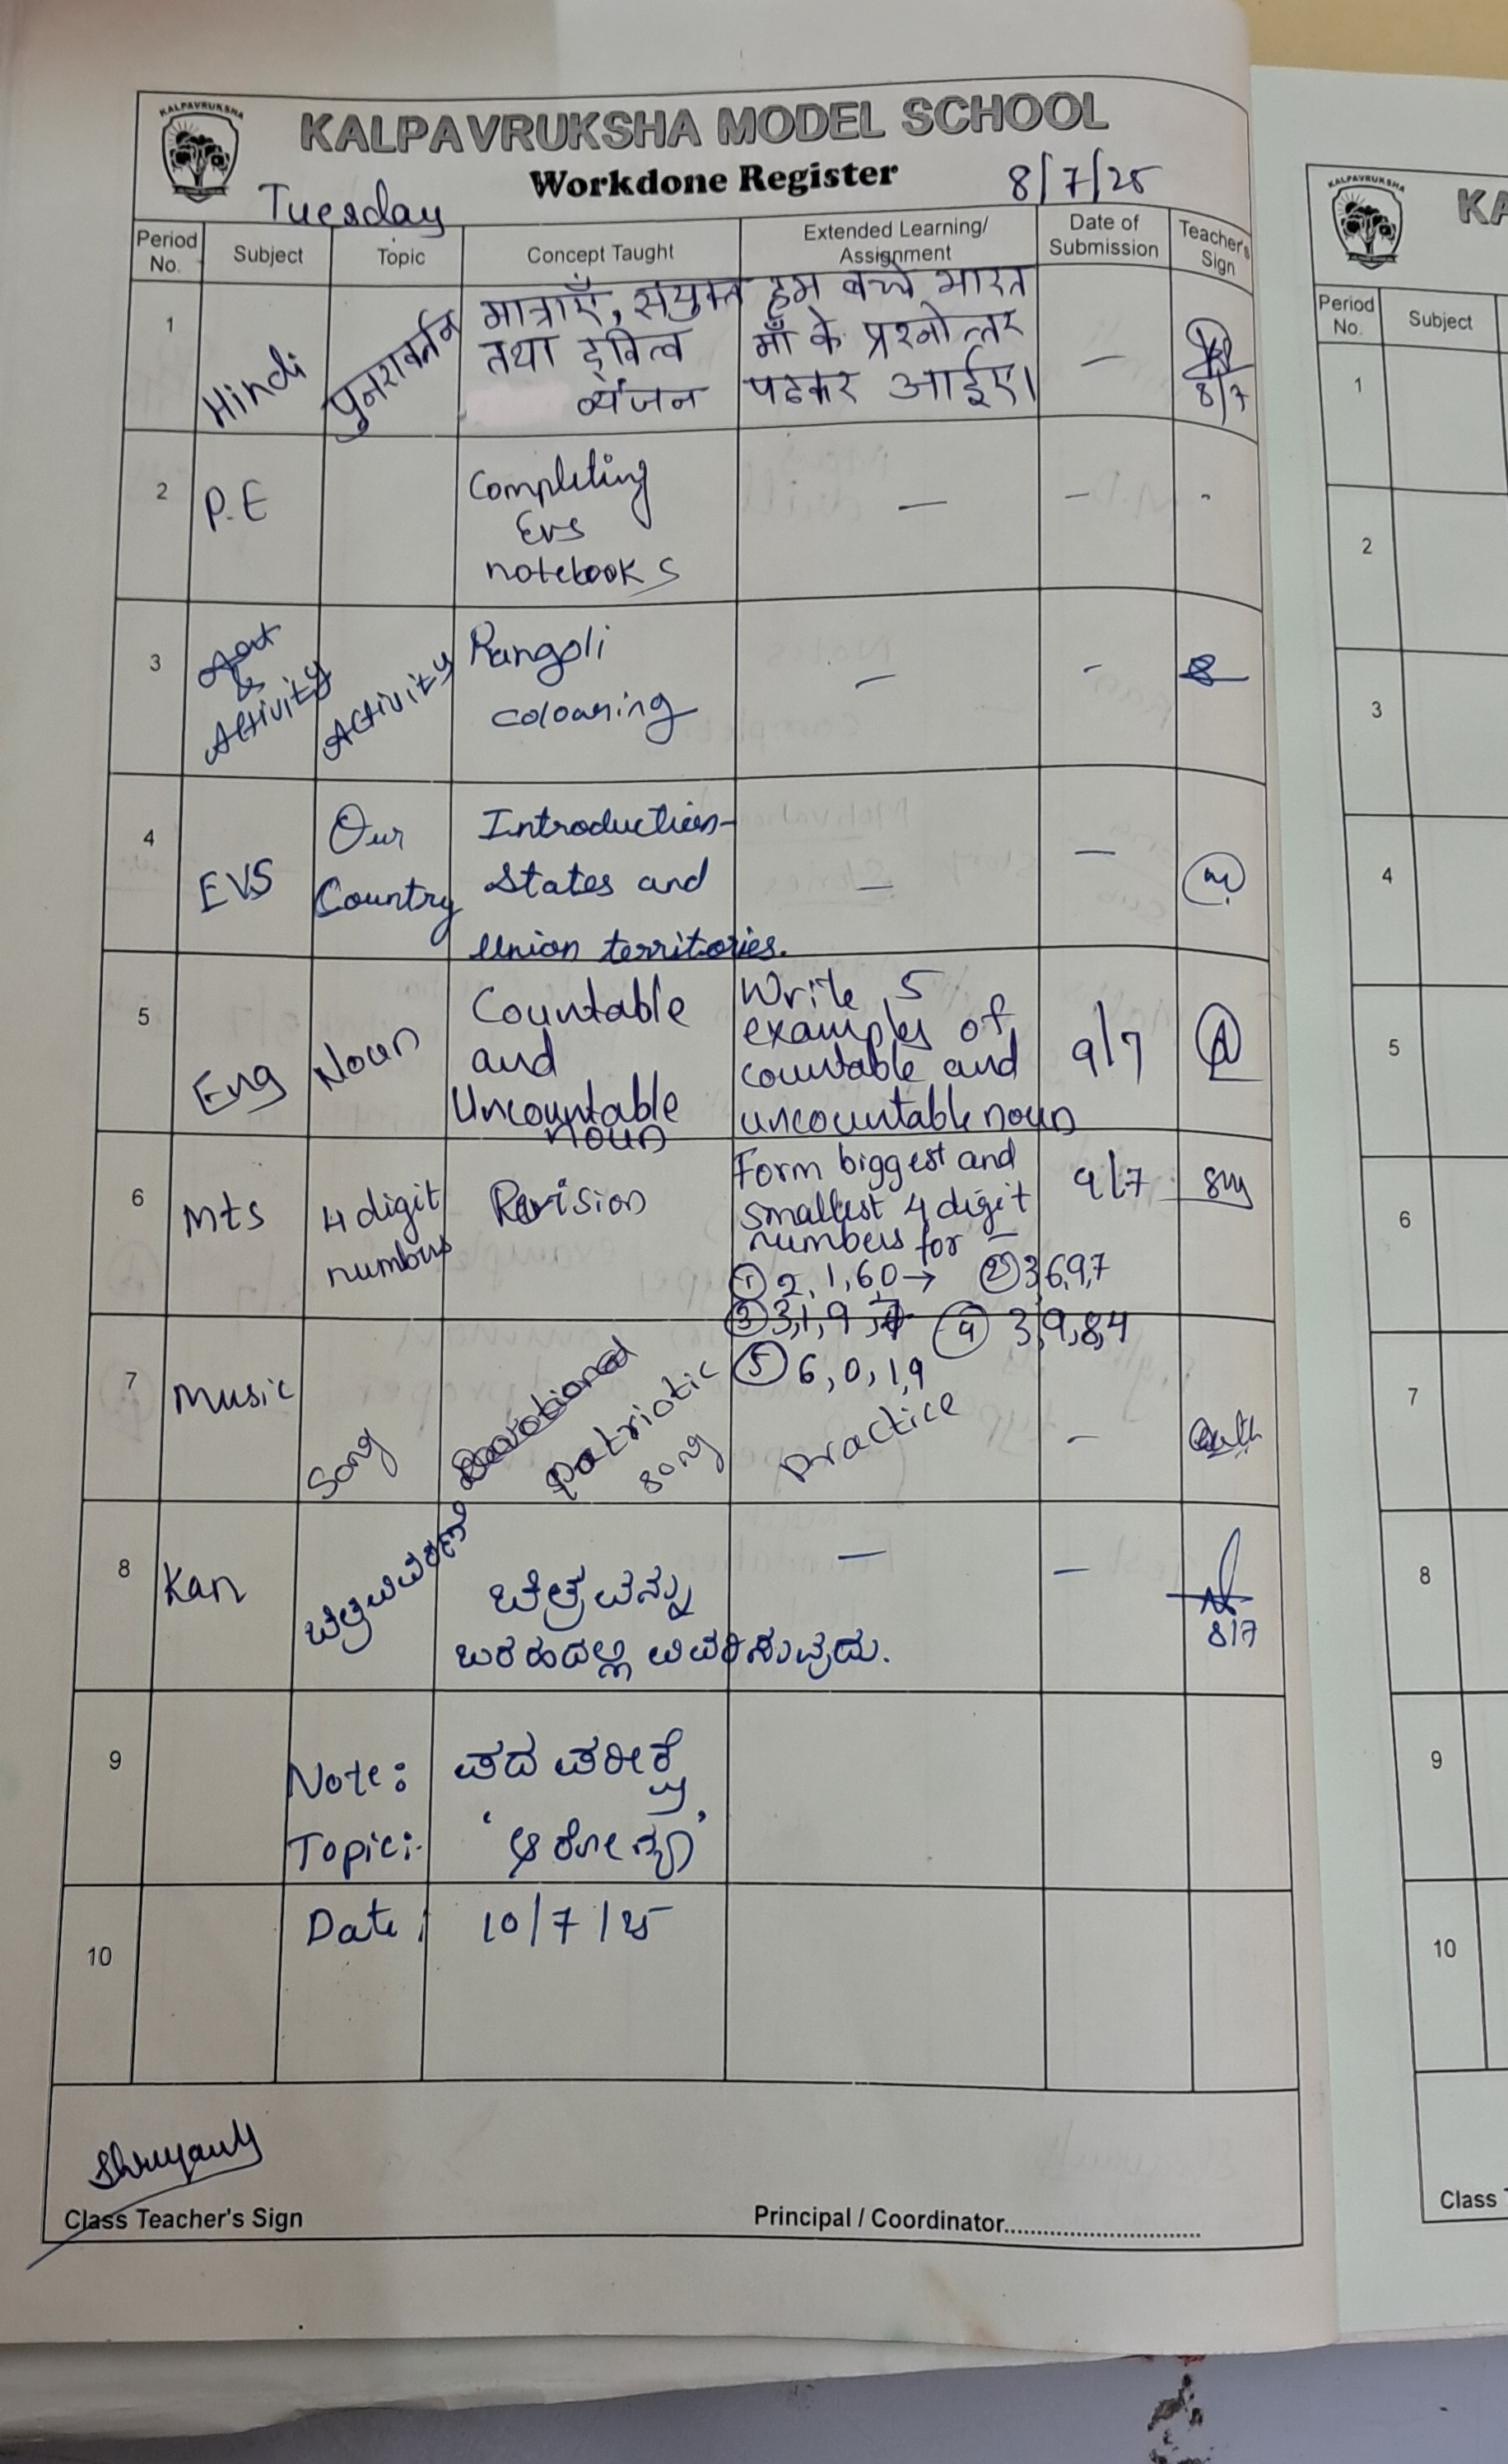 KALPAVRUKSHA
KALPAVRUKSHA MODEL SCHOOL
Workdone Register
Tuesday
8/7/25
Period No.
Subject
Topic
Concept Taught
Extended Learning/
Assignment
Date of
Submission
Teacher's
Sign
1
Hindi
पुनरावर्तन
मात्राएँ, संयुक्त
तथा द्वित्व
व्यंजन
हम बच्चे भारत
माँ के प्रश्नोत्तर
पढकर आईए।
—
8/7
2
P.E
Completing
Evs
notebooks
—
—
3
Art
&
Activity
Activity
Rangoli
colouring
—
-
4
EVS
Our
Country
Introduction-
States and
Union territories.
—
—
5
Eng
Noun
Countable
and
Uncountable
noun
Write 5
examples of
countable and
uncountable noun
9/7
6
Mts
4 digit
numbers
Revision
Form biggest and
smallest 4 digit
numbers for —
① 2,1,6,0→ ② 3,6,9,7
③ 3,1,9, ④ 3,9,8,4
⑤ 6,0,1,9
9/7
7
Music
Song
Devotional
patriotic
song
practice
—
8
Kan
ಚಿತ್ರವಿವರಣೆ
ಚಿತ್ರವನ್ನು
ಬರಹದಲ್ಲಿ ವಿವರಿಸುವುದು.
—
—
8/7
9
Note:
ಪದ ಪರೀಕ್ಷೆ
Topic:-
'ಆರೋಗ್ಯ'
10
Date:
10/7/25
Class Teacher's Sign
Principal / Coordinator
KALPAVRUKSHA
KA
Period No.
Subject
1
2
3
4
5
6
7
8
9
10
Class